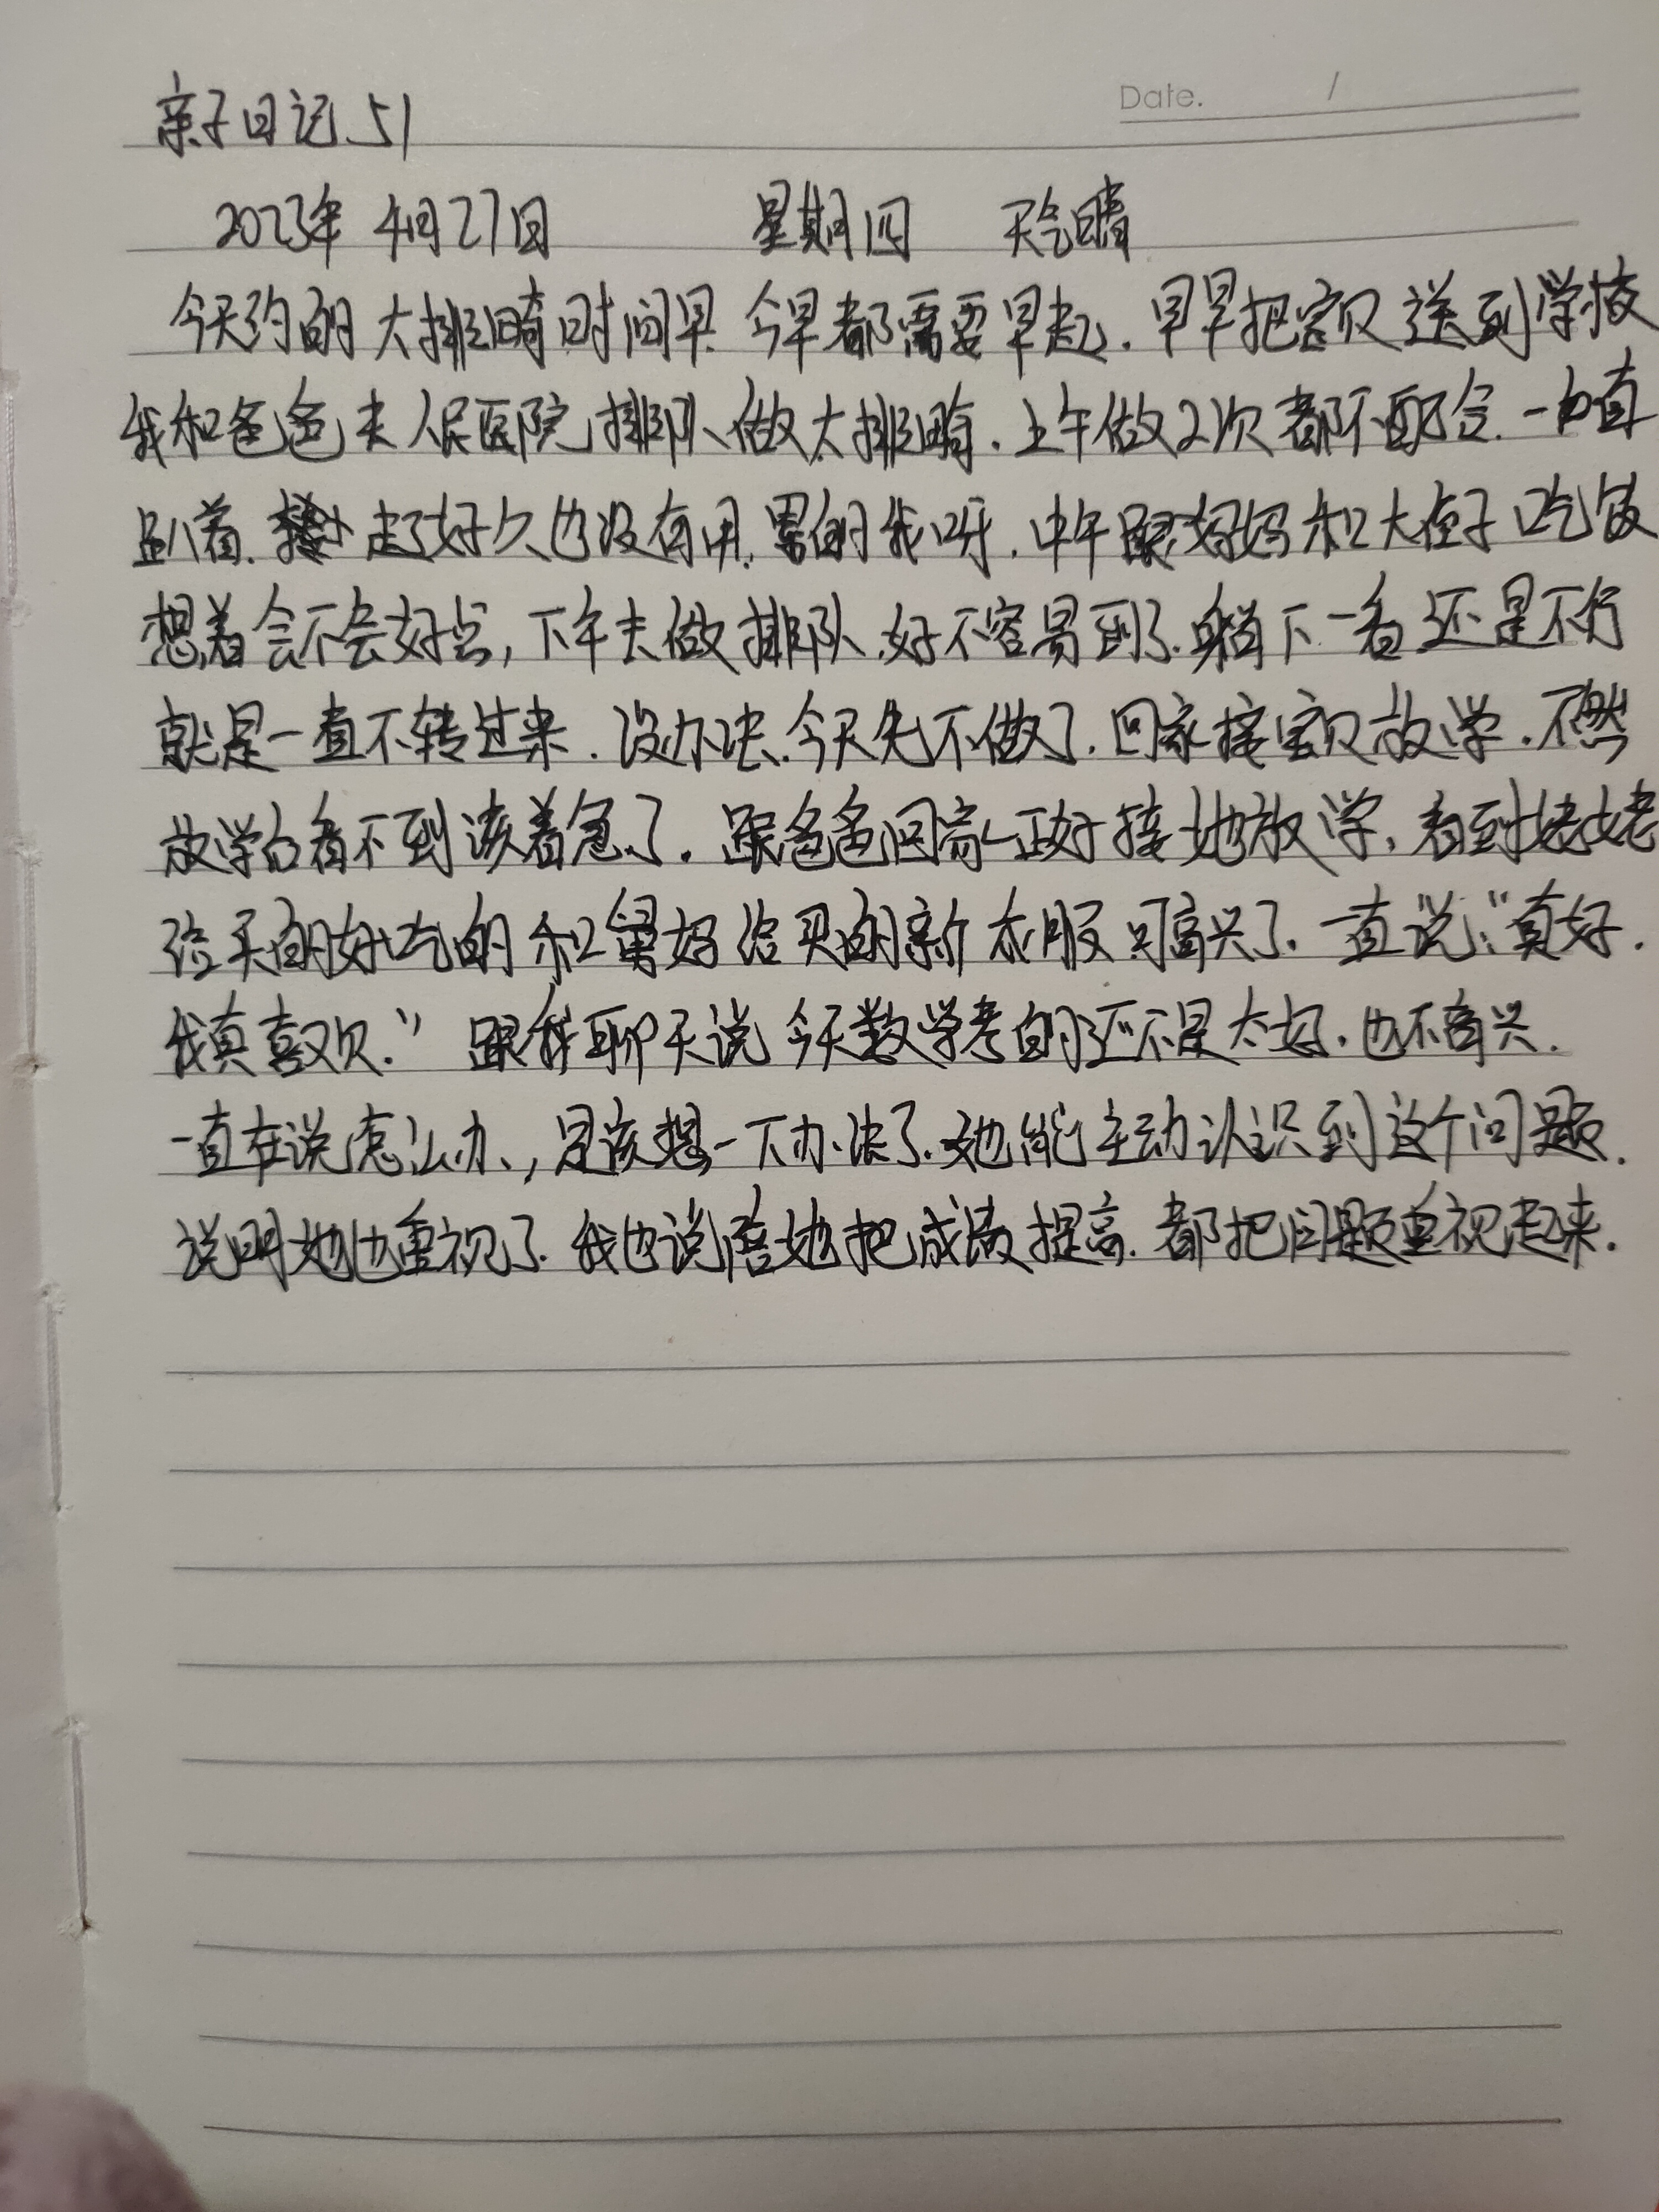 亲子日记 51
Date. /
2023年 4月27日 星期四 天气晴
今天约的大排畸时间早.今早都需要早起.早早把宝贝送到学校
我和爸爸去人民医院排队做大排畸.上午做2次都不配合.一直
趴着.走了好久也没有用.累的我呀.中午跟妈妈和大侄子吃饭
想着会不会好点,下午去做排队.好不容易到了.躺下一看还是不行
就是一直不转过来.没办法.今天先不做了.回家接宝贝放学.不然
放学后看不到该着急了.跟爸爸回高正好接她放学,看到姥姥
给买的好吃的和舅妈给买的新衣服可高兴了.一直说:“真好.
我真喜欢.”跟我聊天说今天数学考的还不是太好.也不高兴.
一直在说怎么办,是该想一下办法了.她能主动认识到这个问题.
说明她也重视了.我也说陪她把成绩提高.都把问题重视起来.